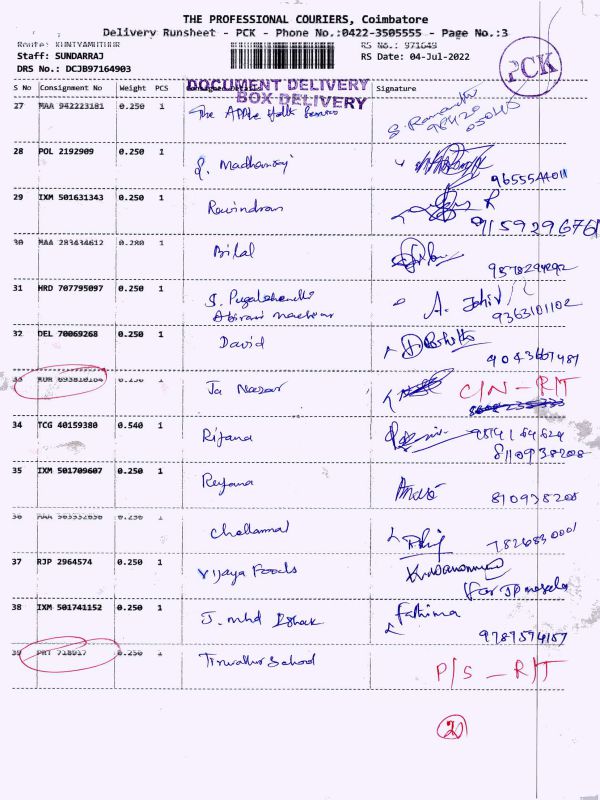 THE PROFESSIONAL COURIERS, Coimbatore
Delivery Runsheet - PCK - Phone No.:0422-3505555 - Page No.:3
Route: KUNIYAMUTHUR
RS No.: 971649
Staff: SUNDARRAJ
RS Date: 04-Jul-2022
DRS No.: DCJB97164903
PCK
DOCUMENT DELIVERY
BOX DELIVERY
S No Consignment No Weight PCS Signature
27 MAA 942223181 0.250 1 The Apple
28 POL 2192909 0.250 1 Madhanraj
9655544011
29 IXM 501631343 0.250 1 Ravindran
9159296761
30 MAA 283434612 0.280 1 Bilal
31 HRD 707795097 0.250 1 S. Pugalahendhi A. Jahir
Abirami 9363101102
32 DEL 70069268 0.250 1 David
33 0.250 1 Ja Nazar C/N - R/T
34 TCG 40159380 0.540 1 Rifana
8110938208
35 IXM 501709607 0.250 1 Reyana
810938208
36 0.250 1 Chellammal
7826830001
37 RJP 2964574 0.250 1 Vijaya Foods
For JP masala
38 IXM 501741152 0.250 1 J. mhd Ishak Fathima
9787594157
39 PNT 718917 0.250 1 School P/S - R/T
2